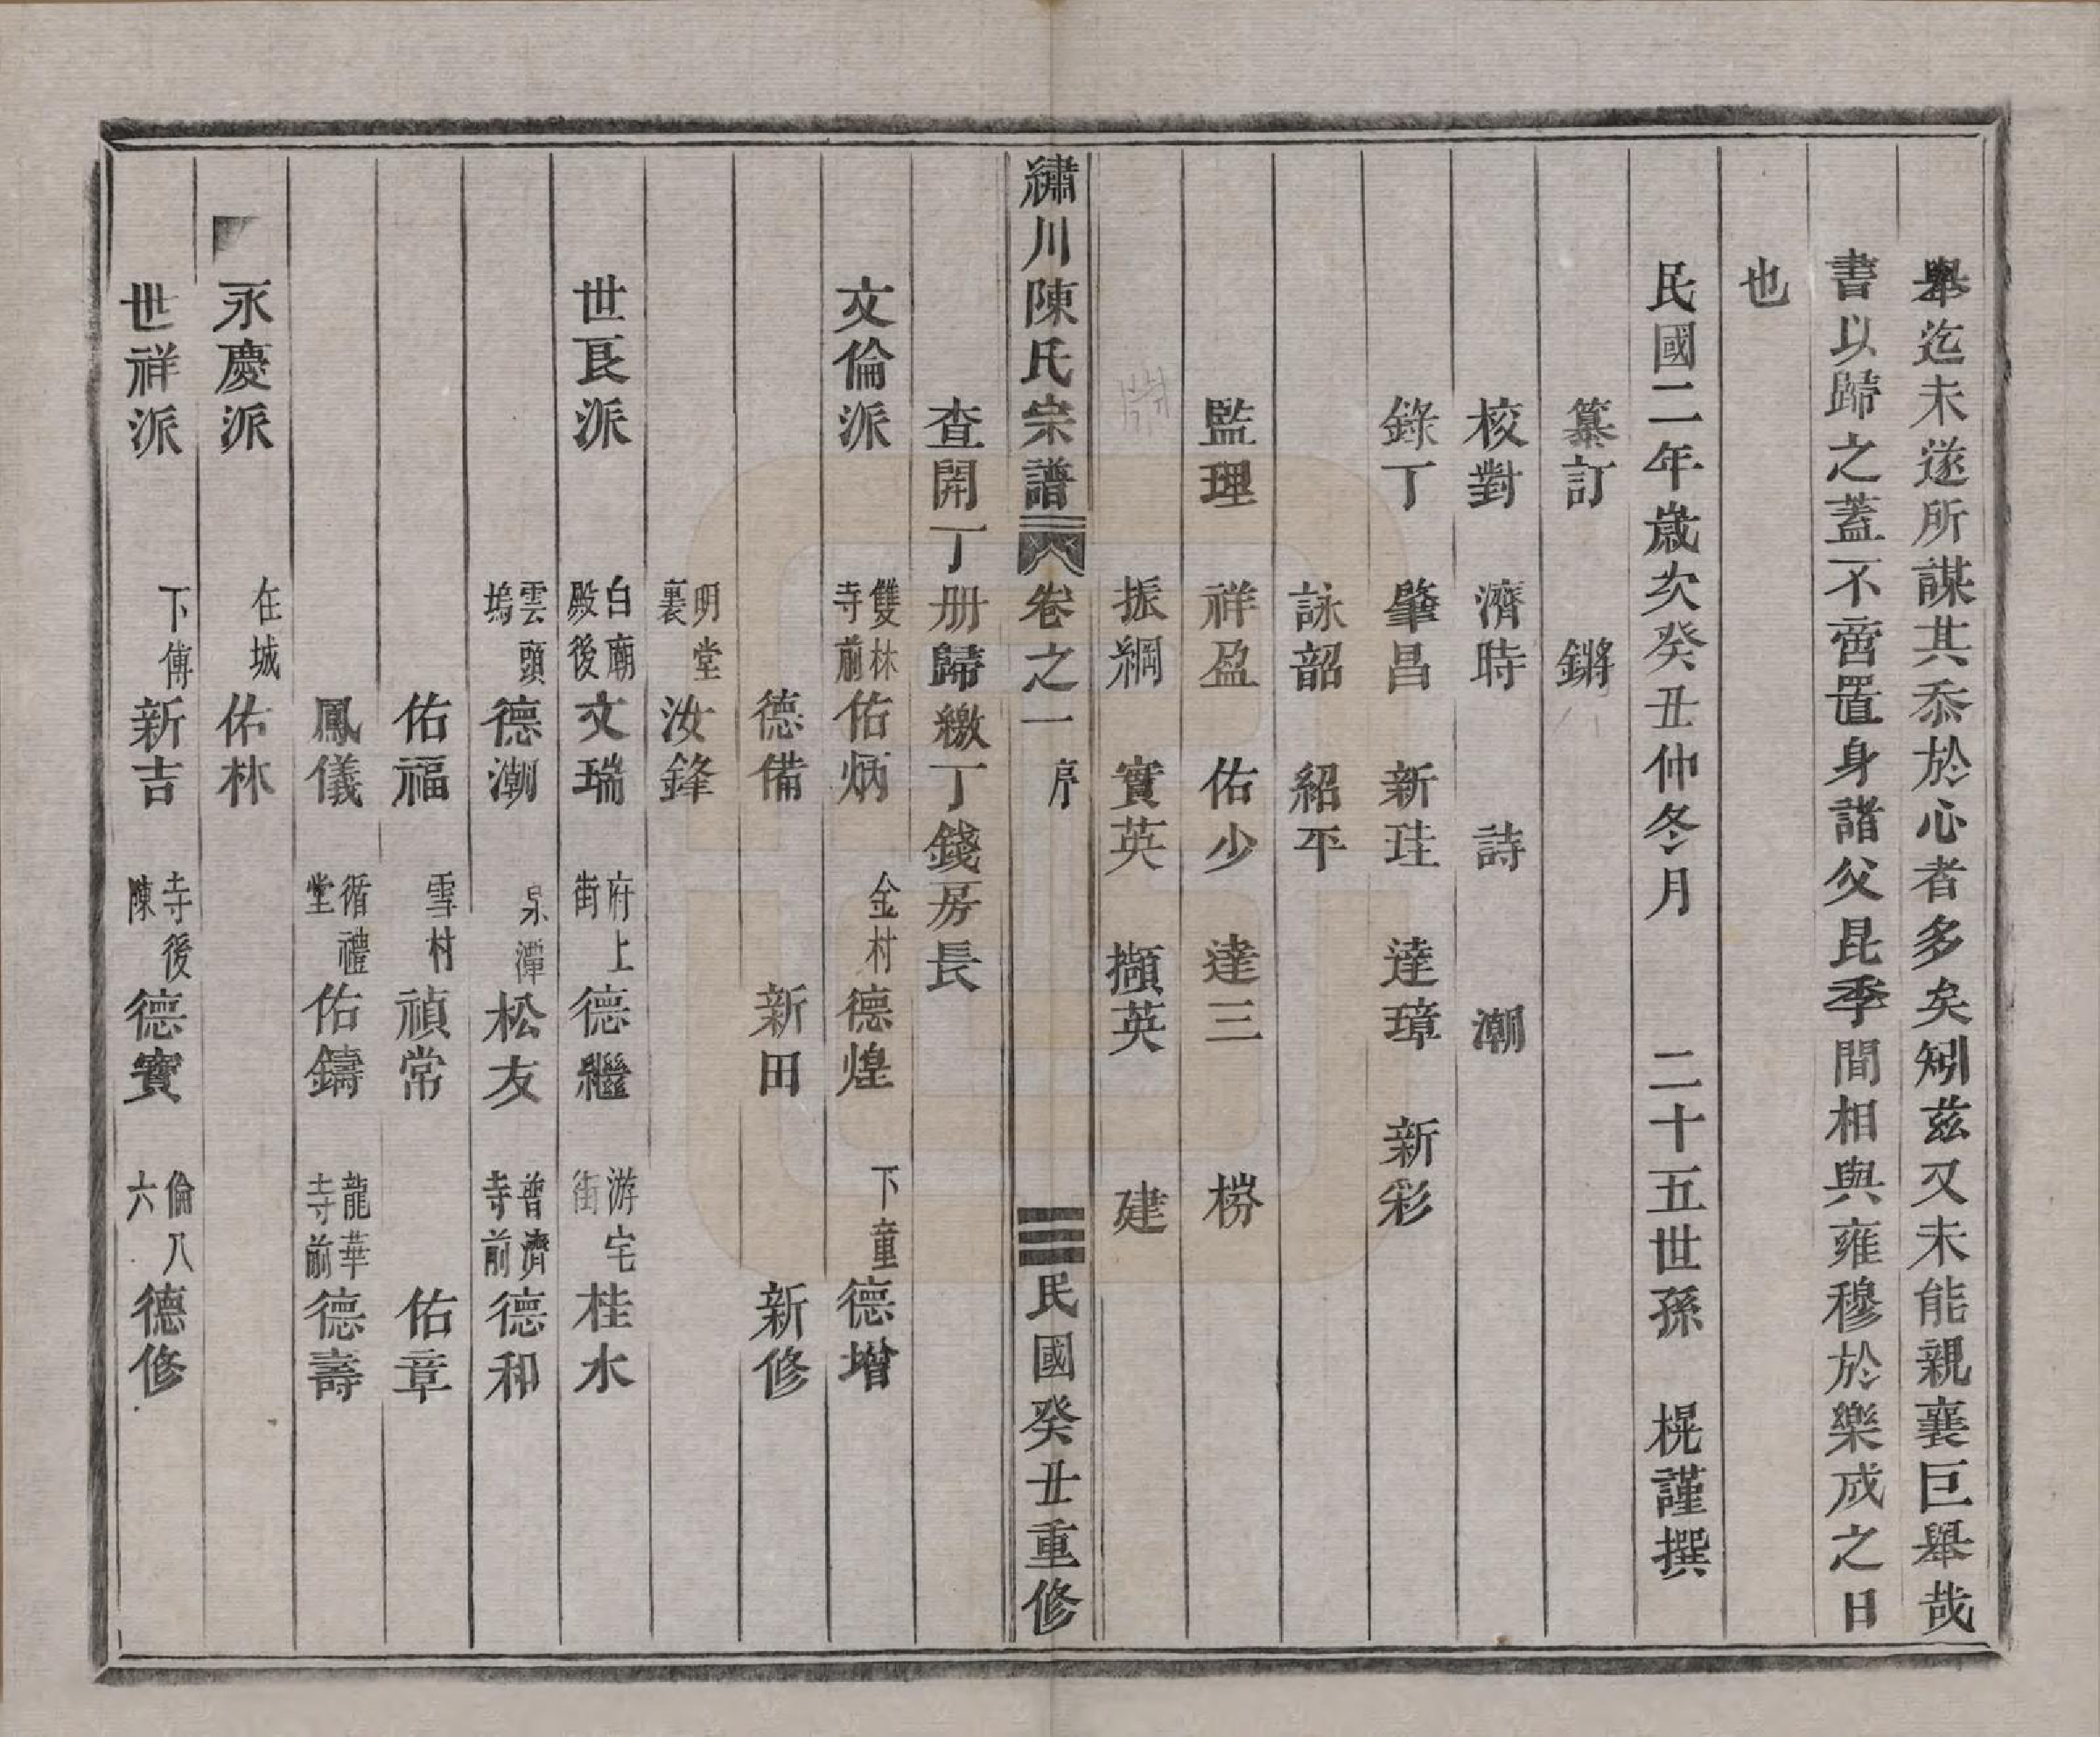 舉迄未遂所謀其忝於心者多矣矧茲又未能親襄巨舉哉
書以歸之蓋不啻置身諸父昆季間相與雍穆於樂成之日
也
民國二年歲次癸丑仲冬月　二十五世孫　榥謹撰
纂訂　鏘
校對　濟時　詩　潮
錄丁　肇昌　新珪　達璋　新彩
詠韶　紹平
監理　祥盈　佑少　達三　榜
振綱　實英　擷英　建
繡川陳氏宗譜　卷之一　序　民國癸丑重修
查開丁册歸繳丁錢房長
文倫派　雙林寺前　佑炳　金村　德煌　下童　德增
德備　新田　新修
明堂裏　汝鋒
世良派　白廟殿後　文瑞　府上街　德繼　游宅街　桂水
雲頭塢　德潮　泉潭　松友　普濟寺前　德和
佑福　雪村　禎常　佑章
鳳儀　循禮堂　佑鑄　龍華寺前　德壽
永慶派　在城　佑林
世祥派　下傅　新吉　寺後陳　德寳　倫八六　德修